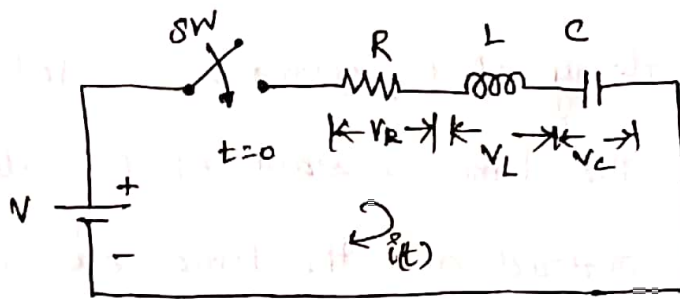 SW
R L C
t=0
VR VL VC
V
+
-
i(t)